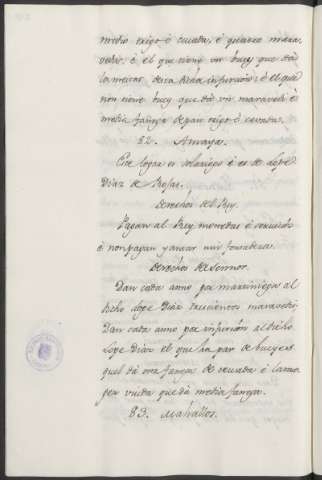 medio trigo é cevada, é quatro mara-
vedis, é el que tiene un buey que dá
la meitat desta dicha infurcion: é el que
non tiene buey que dá un maravedí é
media fanega de pan trigo é cevada.
82. Amaya.
Este logar es solariego é es de Lope
Diaz de Rojas.
Derechos del Rey.
Pagan al Rey monedas é servicios
é non pagan yantar nin fonsadera.
Derechos de Sennor.
Dan cada anno por martiniega al
dicho Lope Diaz trecientos maravedis.
Dan cada anno por infurción al dicho
Lope Diaz el que ha par de bueyes
quel dá una fanega de cevada é la mu-
ger viuda que dá media fanega.
83. Mahallos.